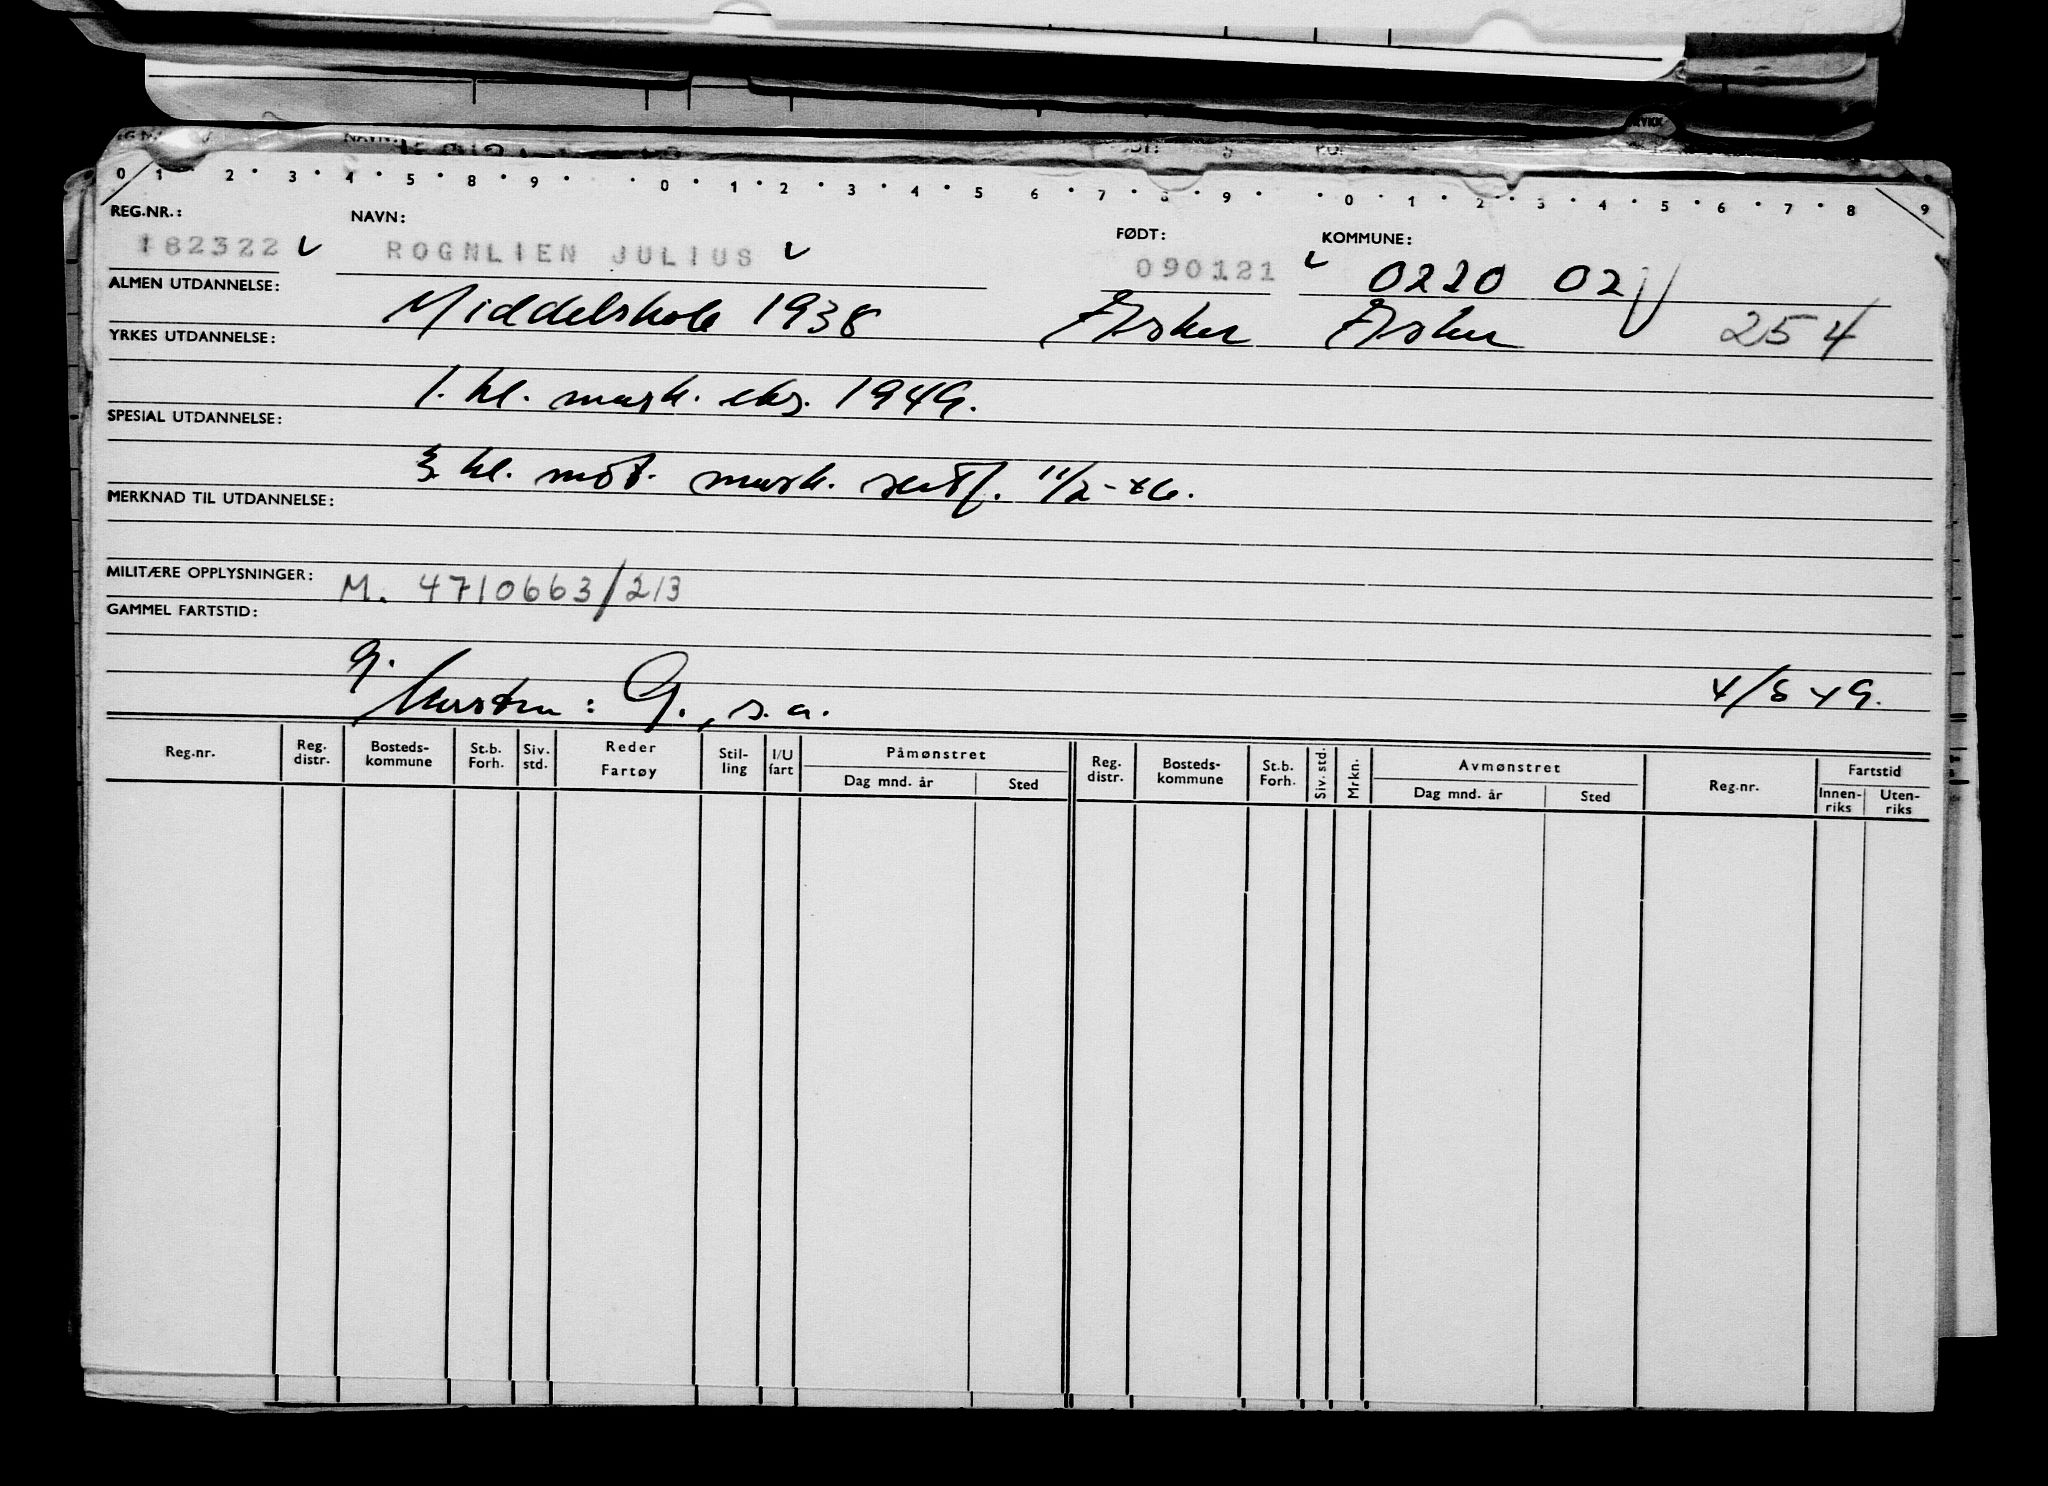 0 1 2 3 4 5 8 9 0 1 2 3 4 5 6 7 8 9 0 1 2 3 4 5 6 7 8 9
REG.NR.: NAVN: FØDT: KOMMUNE:
182322 ROGNLIEN JULIUS 090121 0220 02
ALMEN UTDANNELSE: Middelskole 1938 Asker Asker 254
YRKES UTDANNELSE:
1. kl. mask. eks. 1949.
SPESIAL UTDANNELSE:
3. kl. mot. mask. sertf. 11/2-46.
MERKNAD TIL UTDANNELSE:
MILITÆRE OPPLYSNINGER: M. 4710663/213
GAMMEL FARTSTID:
G., s.a. 4/8 49.
Reg.nr. Reg. distr. Bosteds-kommune St.b. Forh. Siv. std. Reder Fartøy Stil-ling I/U fart Påmønstret Dag mnd. år Sted Reg. distr. Bosteds-kommune St.b. Forh. Siv. std. Mrkn. Avmønstret Dag mnd. år Sted Reg.nr. Fartstid Innen-riks Uten-riks